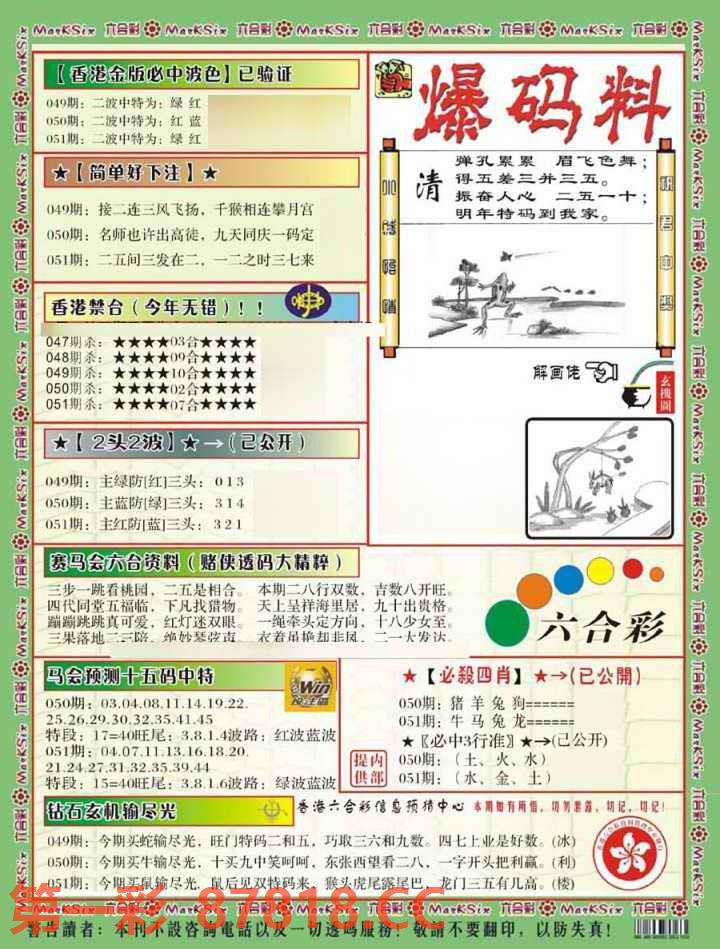 六合彩 MarKSix 六合彩 MarKSix 六合彩 MarKSix 六合彩 MarKSix 六合彩 MarKSix
【香港金版必中波色】已验证
049期：二波中特为：绿 红
050期：二波中特为：红 蓝
051期：二波中特为：绿 红
★【简单好下注】★
049期：接二连三风飞扬，千猴相连攀月宫
050期：名师也许出高徒，九天同庆一码定
051期：二五间三发在二，一二之时三七来
香港禁台（今年无错）！！
047期杀：★★★★03合★★★★
048期杀：★★★★09合★★★★
049期杀：★★★★10合★★★★
050期杀：★★★★02合★★★★
051期杀：★★★★07合★★★★
★【2头2波】★→(已公开)
049期：主绿防[红]三头：013
050期：主蓝防[绿]三头：314
051期：主红防[蓝]三头：321
爆码料
清
弹孔累累 眉飞色舞；
得五差三并三五。
振奋人心 二五一十；
明年特码到我家。
解画佬
玄機圖
赛马会六合资料（赌侠透码大精粹）
三步一跳看桃园，二五是相合。 本期二八行双数，吉数八开旺。
四代同堂五福临，下凡找猎物。 天上呈祥海里居，九十出贵格。
蹦蹦跳跳真可爱，红灯迷双眼。 一绳牵头定方向，十八少女至。
三果落地二三陪，绝妙琴弦声。 衣着虽艳却非凤，二一大发达。
六合彩
马会预测十五码中特
050期：03.04.08.11.14.19.22.
25.26.29.30.32.35.41.45
特段：17=40旺尾：3.8.1.4波路：红波蓝波
051期：04.07.11.13.16.18.20.
21.24.27.31.32.35.39.44
特段：15=40旺尾：3.8.1.6波路：绿波蓝波
Win
★【必殺四肖】★→(已公開)
050期：猪 羊 兔 狗======
051期：牛 马 兔 龙======
★〖必中3行准〗★→(已公开)
050期：（土、火、水）
051期：（水、金、土）
内部提供
钻石玄机输尽光
香港六合彩信息预猜中心 本期如有所悟，切勿泄露，切记，切记！
049期：今期买蛇输尽光，旺门特码二和五，巧取三六和九数。四七上业是好数。(冰)
050期：今期买牛输尽光，十买九中笑呵呵，东张西望看二八，一字开头把利赢。(利)
051期：今期买鼠输尽光，鼠后见双特码来，猴头虎尾露尾巴，龙门三五有几高。(楼)
第一彩 87818.CC
警告讀者：本刊不設咨詢電話以及一切透码服務！敬請不要翻印，以防失真！